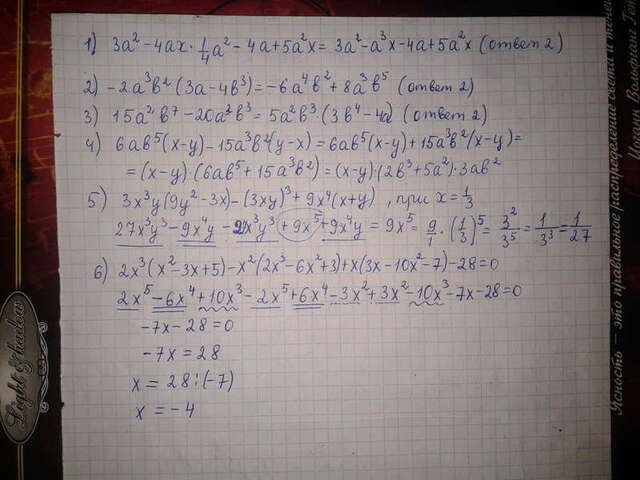 1) 3a² - 4ax · 1/4 a² - 4a + 5a²x = 3a² - a³x - 4a + 5a²x (ответ 2)
2) -2a³b² (3a - 4b³) = -6a⁴b² + 8a³b⁵ (ответ 2)
3) 15a²b⁷ - 20a²b³ = 5a²b³ · (3b⁴ - 4a) (ответ 2)
4) 6ab⁵(x-y) - 15a³b²(y-x) = 6ab⁵(x-y) + 15a³b²(x-y) =
= (x-y) · (6ab⁵ + 15a³b²) = (x-y) · (2b³ + 5a²) · 3ab²
5) 3x³y(9y² - 3x) - (3xy)³ + 9x⁴(x+y), при x = 1/3
27x³y³ - 9x⁴y - 27x³y³ + 9x⁵ + 9x⁴y = 9x⁵ = 9/1 · (1/3)⁵ = 3²/3⁵ = 1/3³ = 1/27
6) 2x³(x² - 3x + 5) - x²(2x³ - 6x² + 3) + x(3x - 10x² - 7) - 28 = 0
2x⁵ - 6x⁴ + 10x³ - 2x⁵ + 6x⁴ - 3x² + 3x² - 10x³ - 7x - 28 = 0
-7x - 28 = 0
-7x = 28
x = 28 : (-7)
x = -4
Light & harbor
Ясность – это правильное распределение света и тени